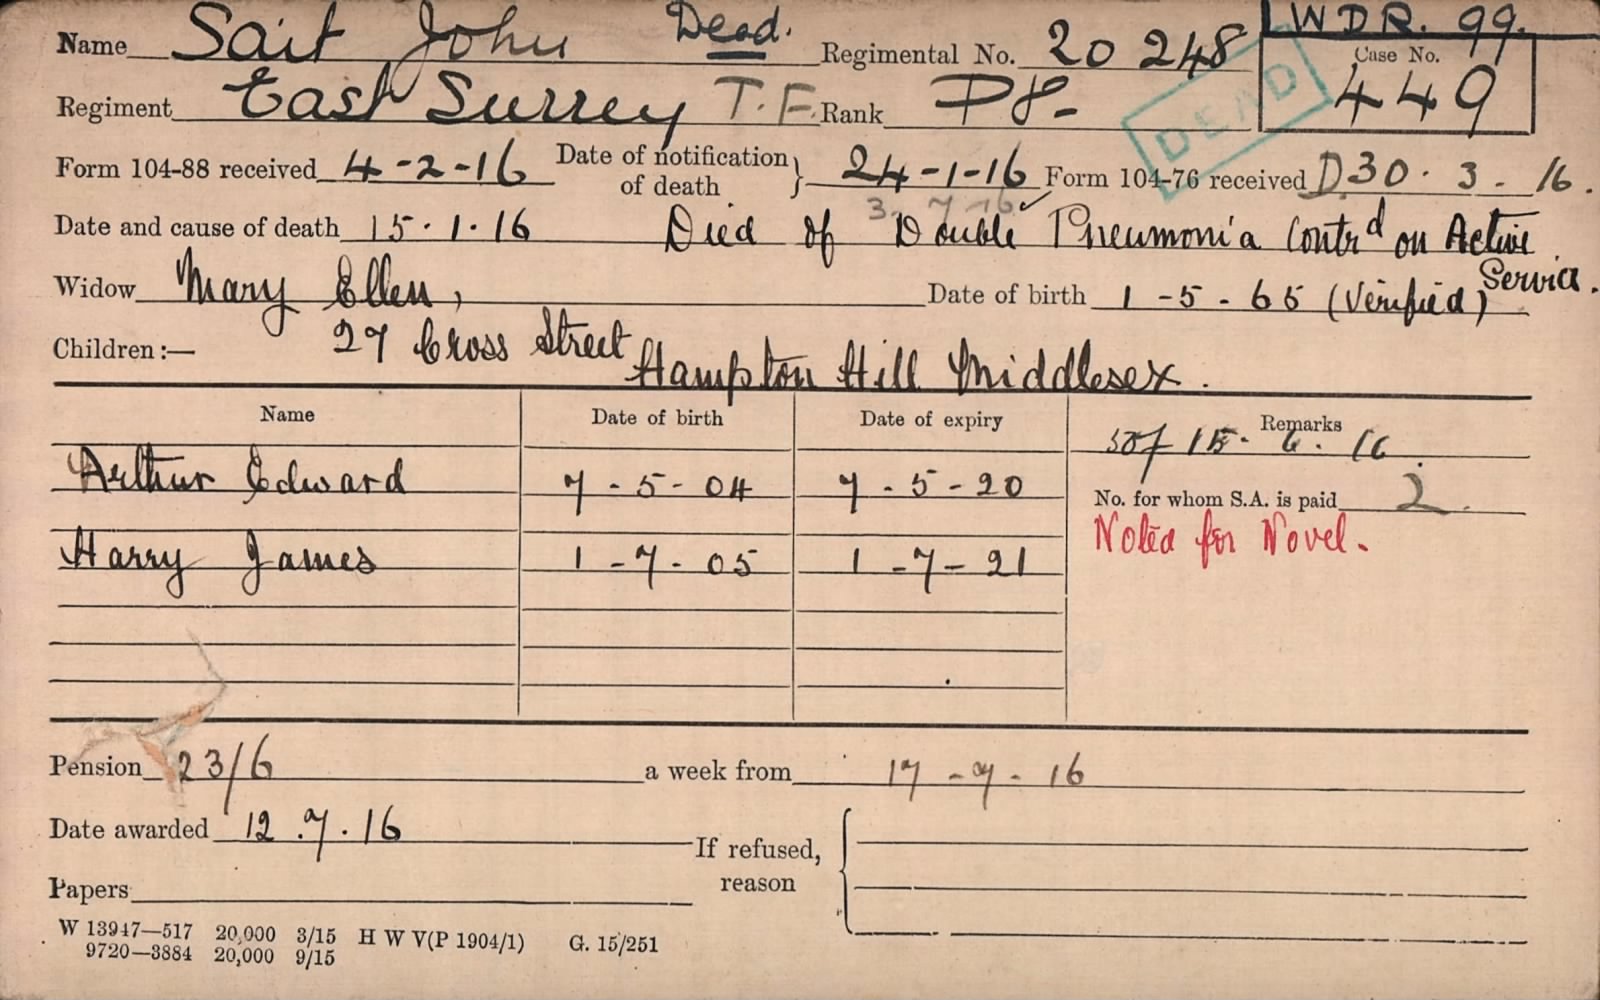 Name Sait John Dead. Regimental No. 20 248 WDR. 99.
Case No. 449
Regiment East Surrey T.F. Rank Pte DEAD
Form 104-88 received 4-2-16 Date of notification of death } 24-1-16 Form 104-76 received D30. 3. 16.
3. 7 16
Date and cause of death 15.1.16 Died of Double Pneumonia Contrd on Active Service.
Widow Mary Ellen, Date of birth 1-5-65 (Verified)
Children :— 27 Cross Street
Hampton Hill Middlesex.
Name Date of birth Date of expiry Remarks
15. 6. 16.
Arthur Edward 7-5-04 7-5-20
No. for whom S.A. is paid 2.
Noted for Novel.
Harry James 1-7-05 1-7-21
Pension 23/6 a week from 17-7-16
Date awarded 12.7.16
If refused, reason
Papers
W 13947—517 20,000 3/15 H W V(P 1904/1) G. 15/251
9720—3884 20,000 9/15